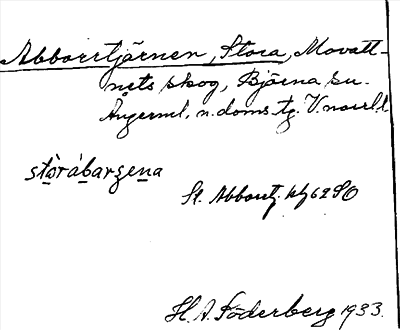 Abborrtjärnen, Stora, Movatt-
nets skog, Björna sn.
Ångerml. n. doms. tg. V.norrl.l
stòrábarʒena
St. Abbortj. kbl 62 SO
H. A. Söderberg 1933.